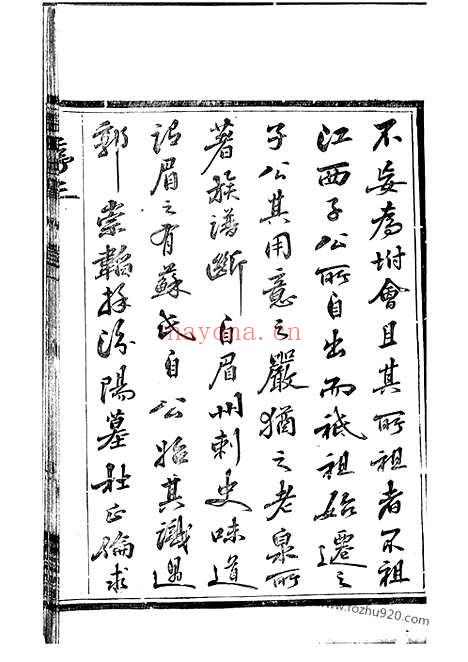 不妄為坿會且其所祖者不祖
江西子公所自出而祗祖始遷之
子公其用意之嚴猶之老泉所
著族譜斷自眉州刺史味道
謂眉之有蘇氏自公始其識過
郭崇韜拜汾陽墓杜正倫求
序二
nayona.cn
www.rozhu920.com